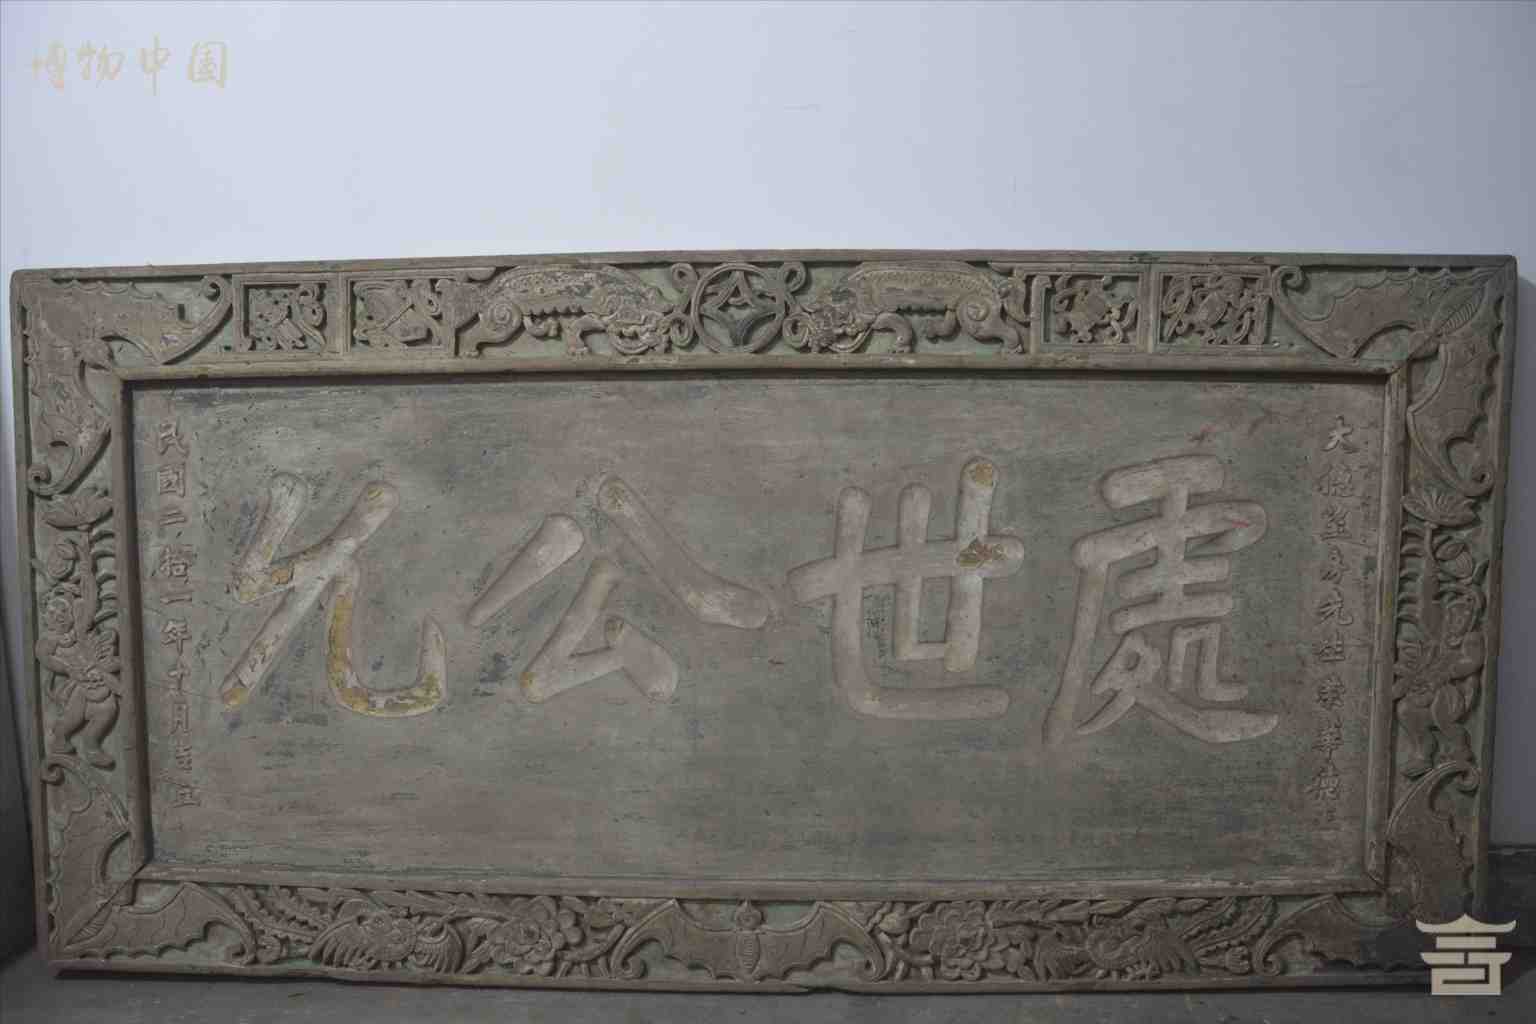 博物中国
大德望
先生
華
處世公允
民國二拾一年十一月吉立